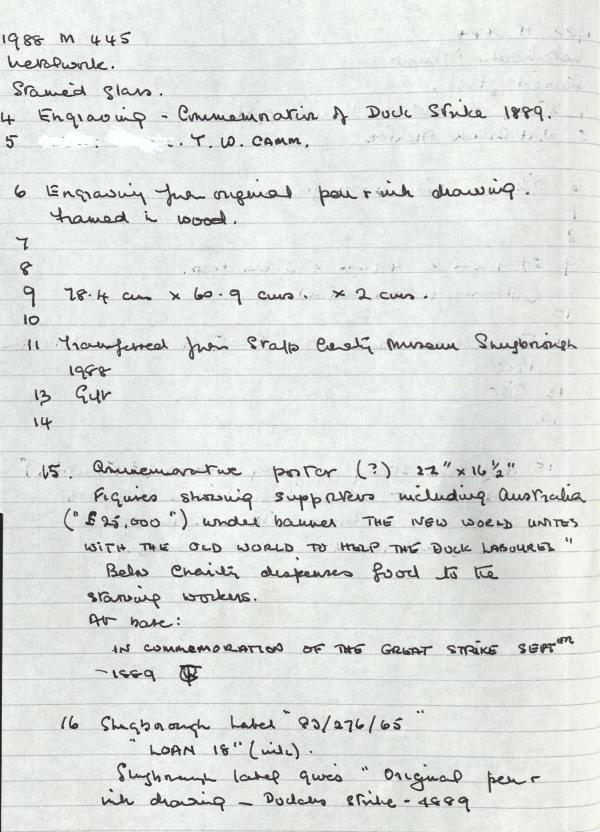 1988 M 445
Stained glass.
4 Engraving - Commemoration of Dock Strike 1889.
5 T. W. CAMM.
6 Engraving from original pen + ink drawing.
Framed in wood.
7
8
9 78.4 cms x 60.9 cms. x 2 cms.
10
11 Transferred from Staffs County Museum Shugborough
1988
13 Gift
14
15. Commemorative poster (?) 22" x 16 1/2"
Figures showing supporters including Australia
("£25,000") under banner THE NEW WORLD UNITES
WITH THE OLD WORLD TO HELP THE DOCK LABOURES"
Below Charity dispenses food to the
starving workers.
At base:
IN COMMEMORATION OF THE GREAT STRIKE SEPT
- 1889
16 Shugborough Label "83/276/65"
"LOAN 18" (ink).
Shugborough label gives "Original pen +
ink drawing - Dockers Strike - 1889